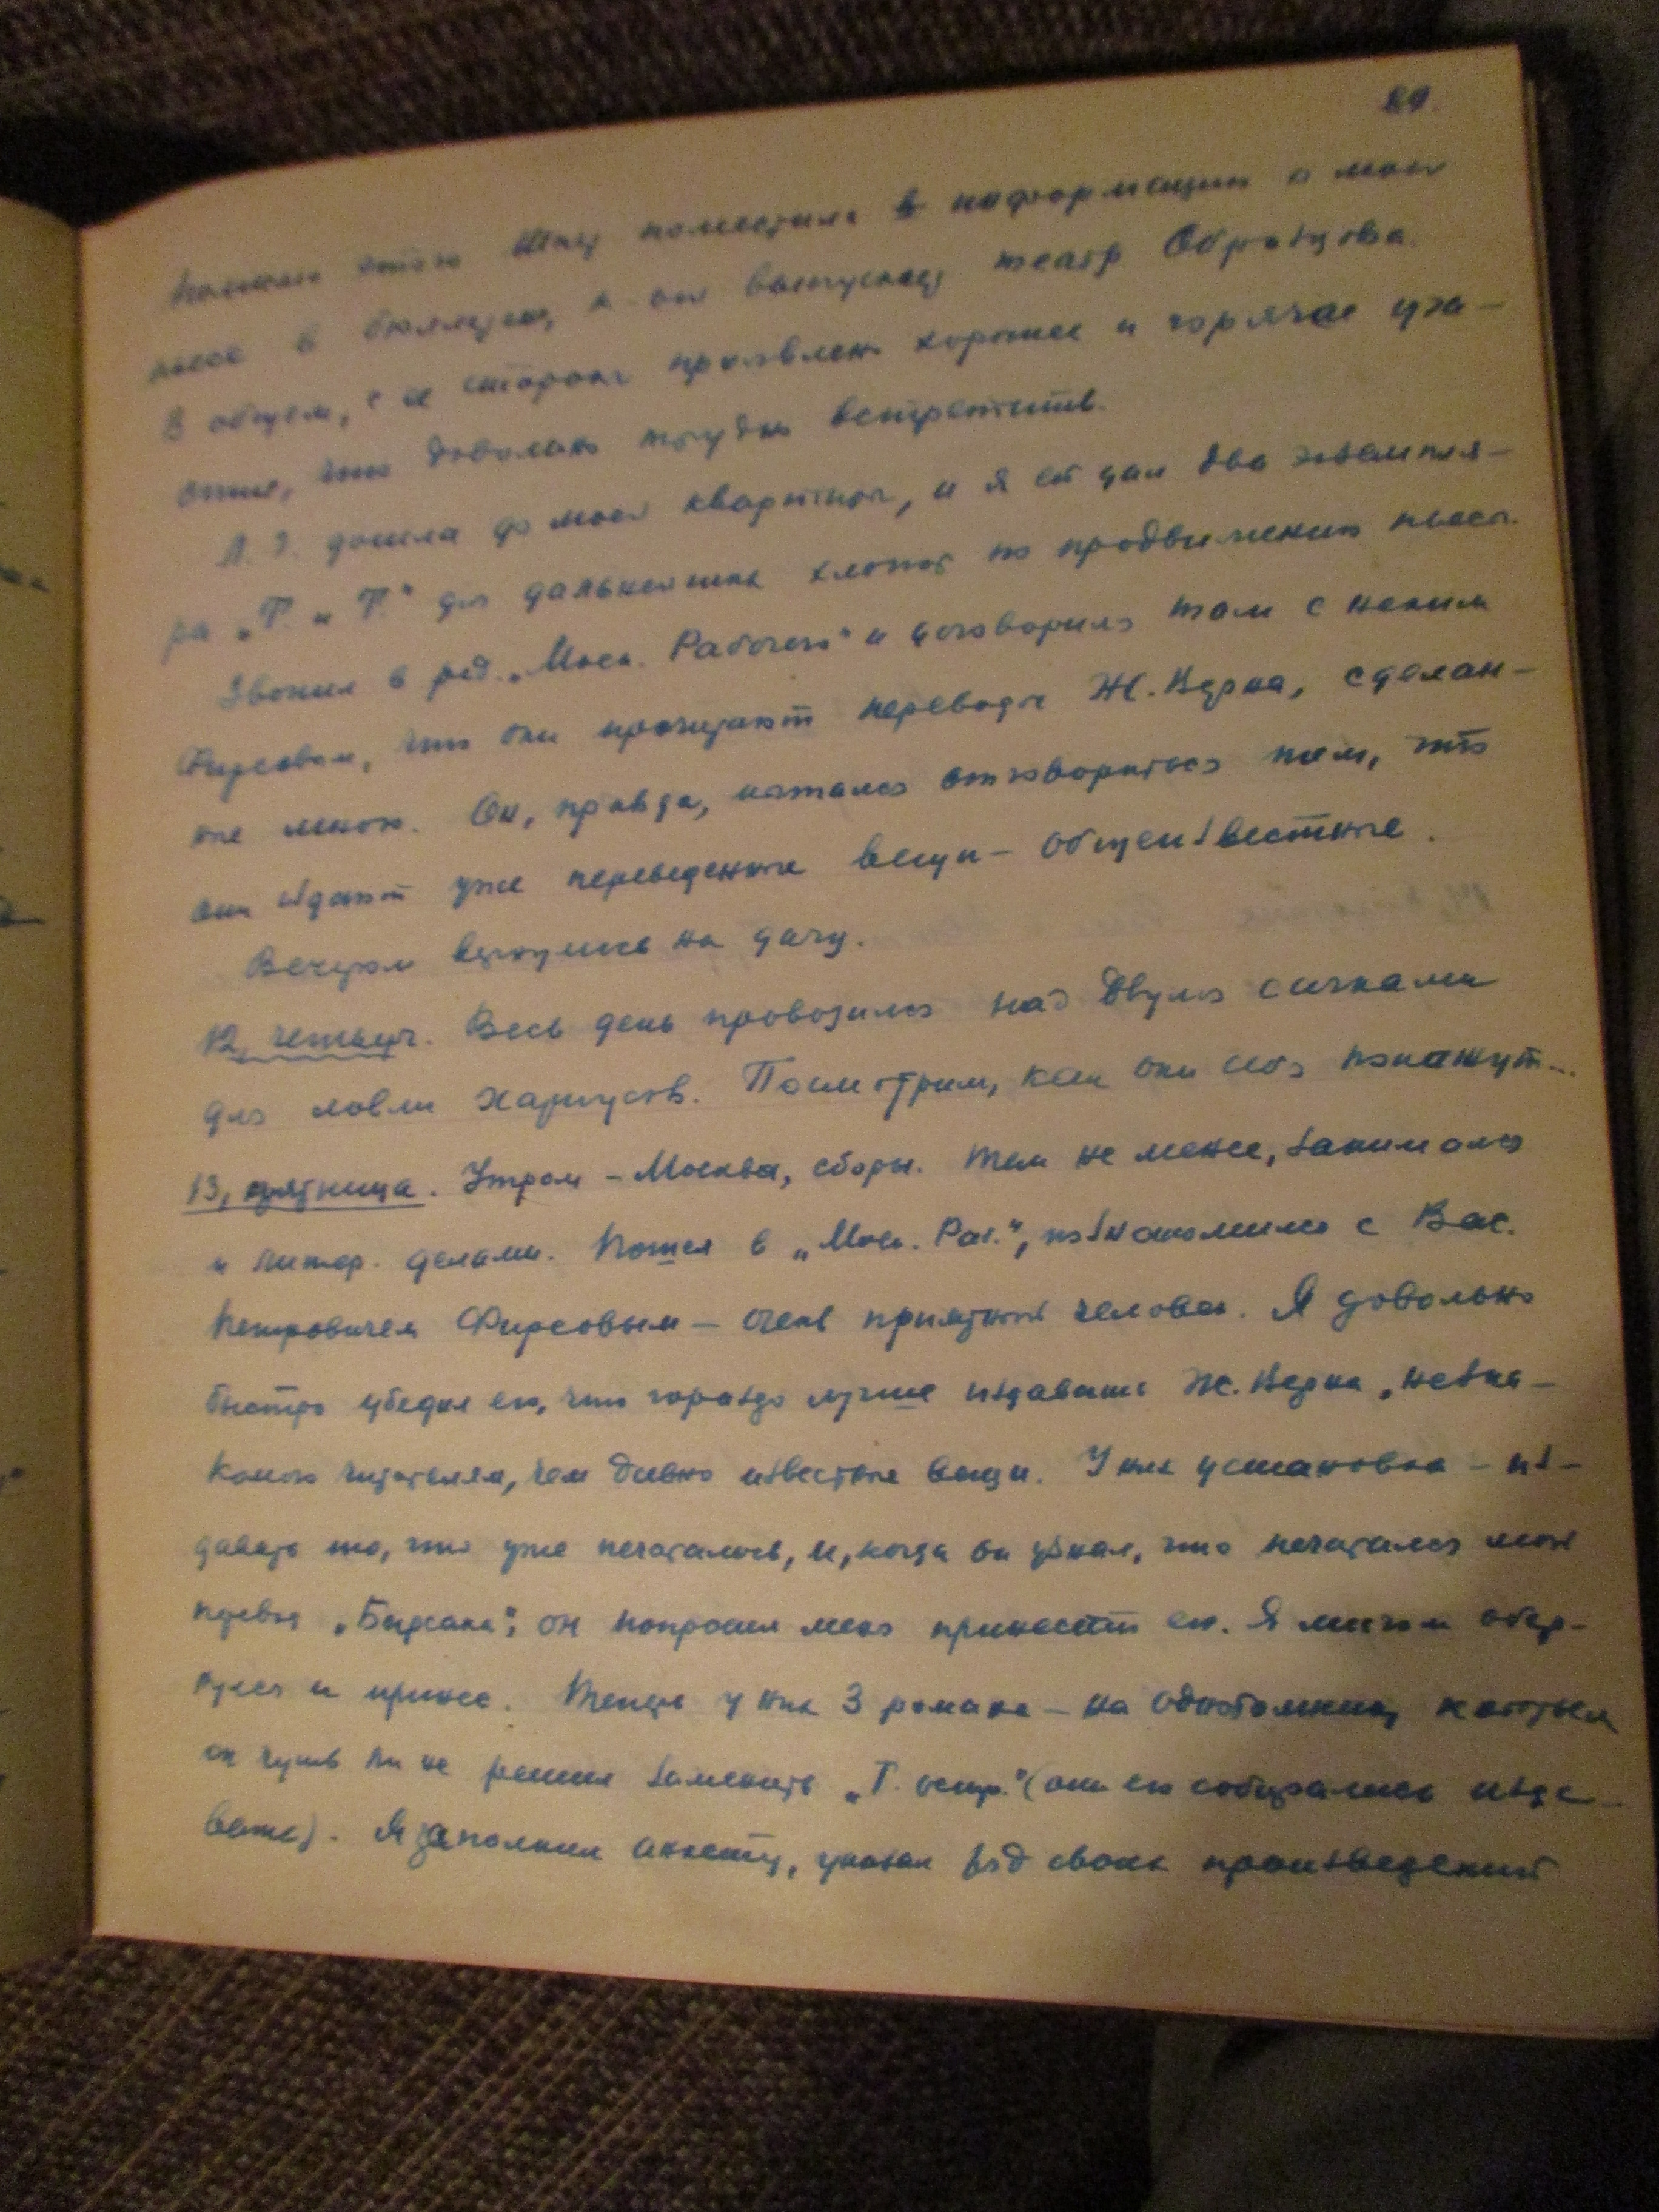 89.
Помимо этого Шпет поместила в информации о моей
пьесе в бюллетне, к-ый выпускает театр Образцова.
В общем, с ее стороны проявлено хорошее и горячее уча-
стие, что довольно трудно встретить.
Л. Г. дошла до моей квартиры, и я ей дал два экземпля-
ра „Т. и Т.“ для дальнейших хлопот по продвижению пьесы.
Звонил в ред. „Моск. Рабочего“ и договорился там с неким
Фирсовым, что они прочитают переводы Ж. Верна, сделан-
ные мною. Он, правда, пытался отговориться тем, что
они издают уже переведенные вещи – общеизвестные.
Вечером вернулись на дачу.
12, четверг. Весь день провозился над двумя сачками
для ловли хариусов. Посмотрим, как они себя покажут...
13, пятница. Утром – Москва, сборы. Тем не менее, занимался
и литер. делами. Пошел в „Моск. Раб.“, познакомился с Вас.
Петровичем Фирсовым – очень приятный человек. Я довольно
быстро убедил его, что гораздо лучше издавать Ж. Верна, незна-
комого читателям, чем давно известные вещи. У них установка – из-
давать то, что уже печаталось, и, когда он узнал, что печатался мой
перевод „Барсака“, он попросил меня принести его. Я мигом обер-
нулся и принес. Теперь у них 3 романа – на однотомник, которым
он чуть ли не решил заменить „Т. остр.“ (они его собирались изда-
вать). Я заполнил анкету, указал ряд своих произведений